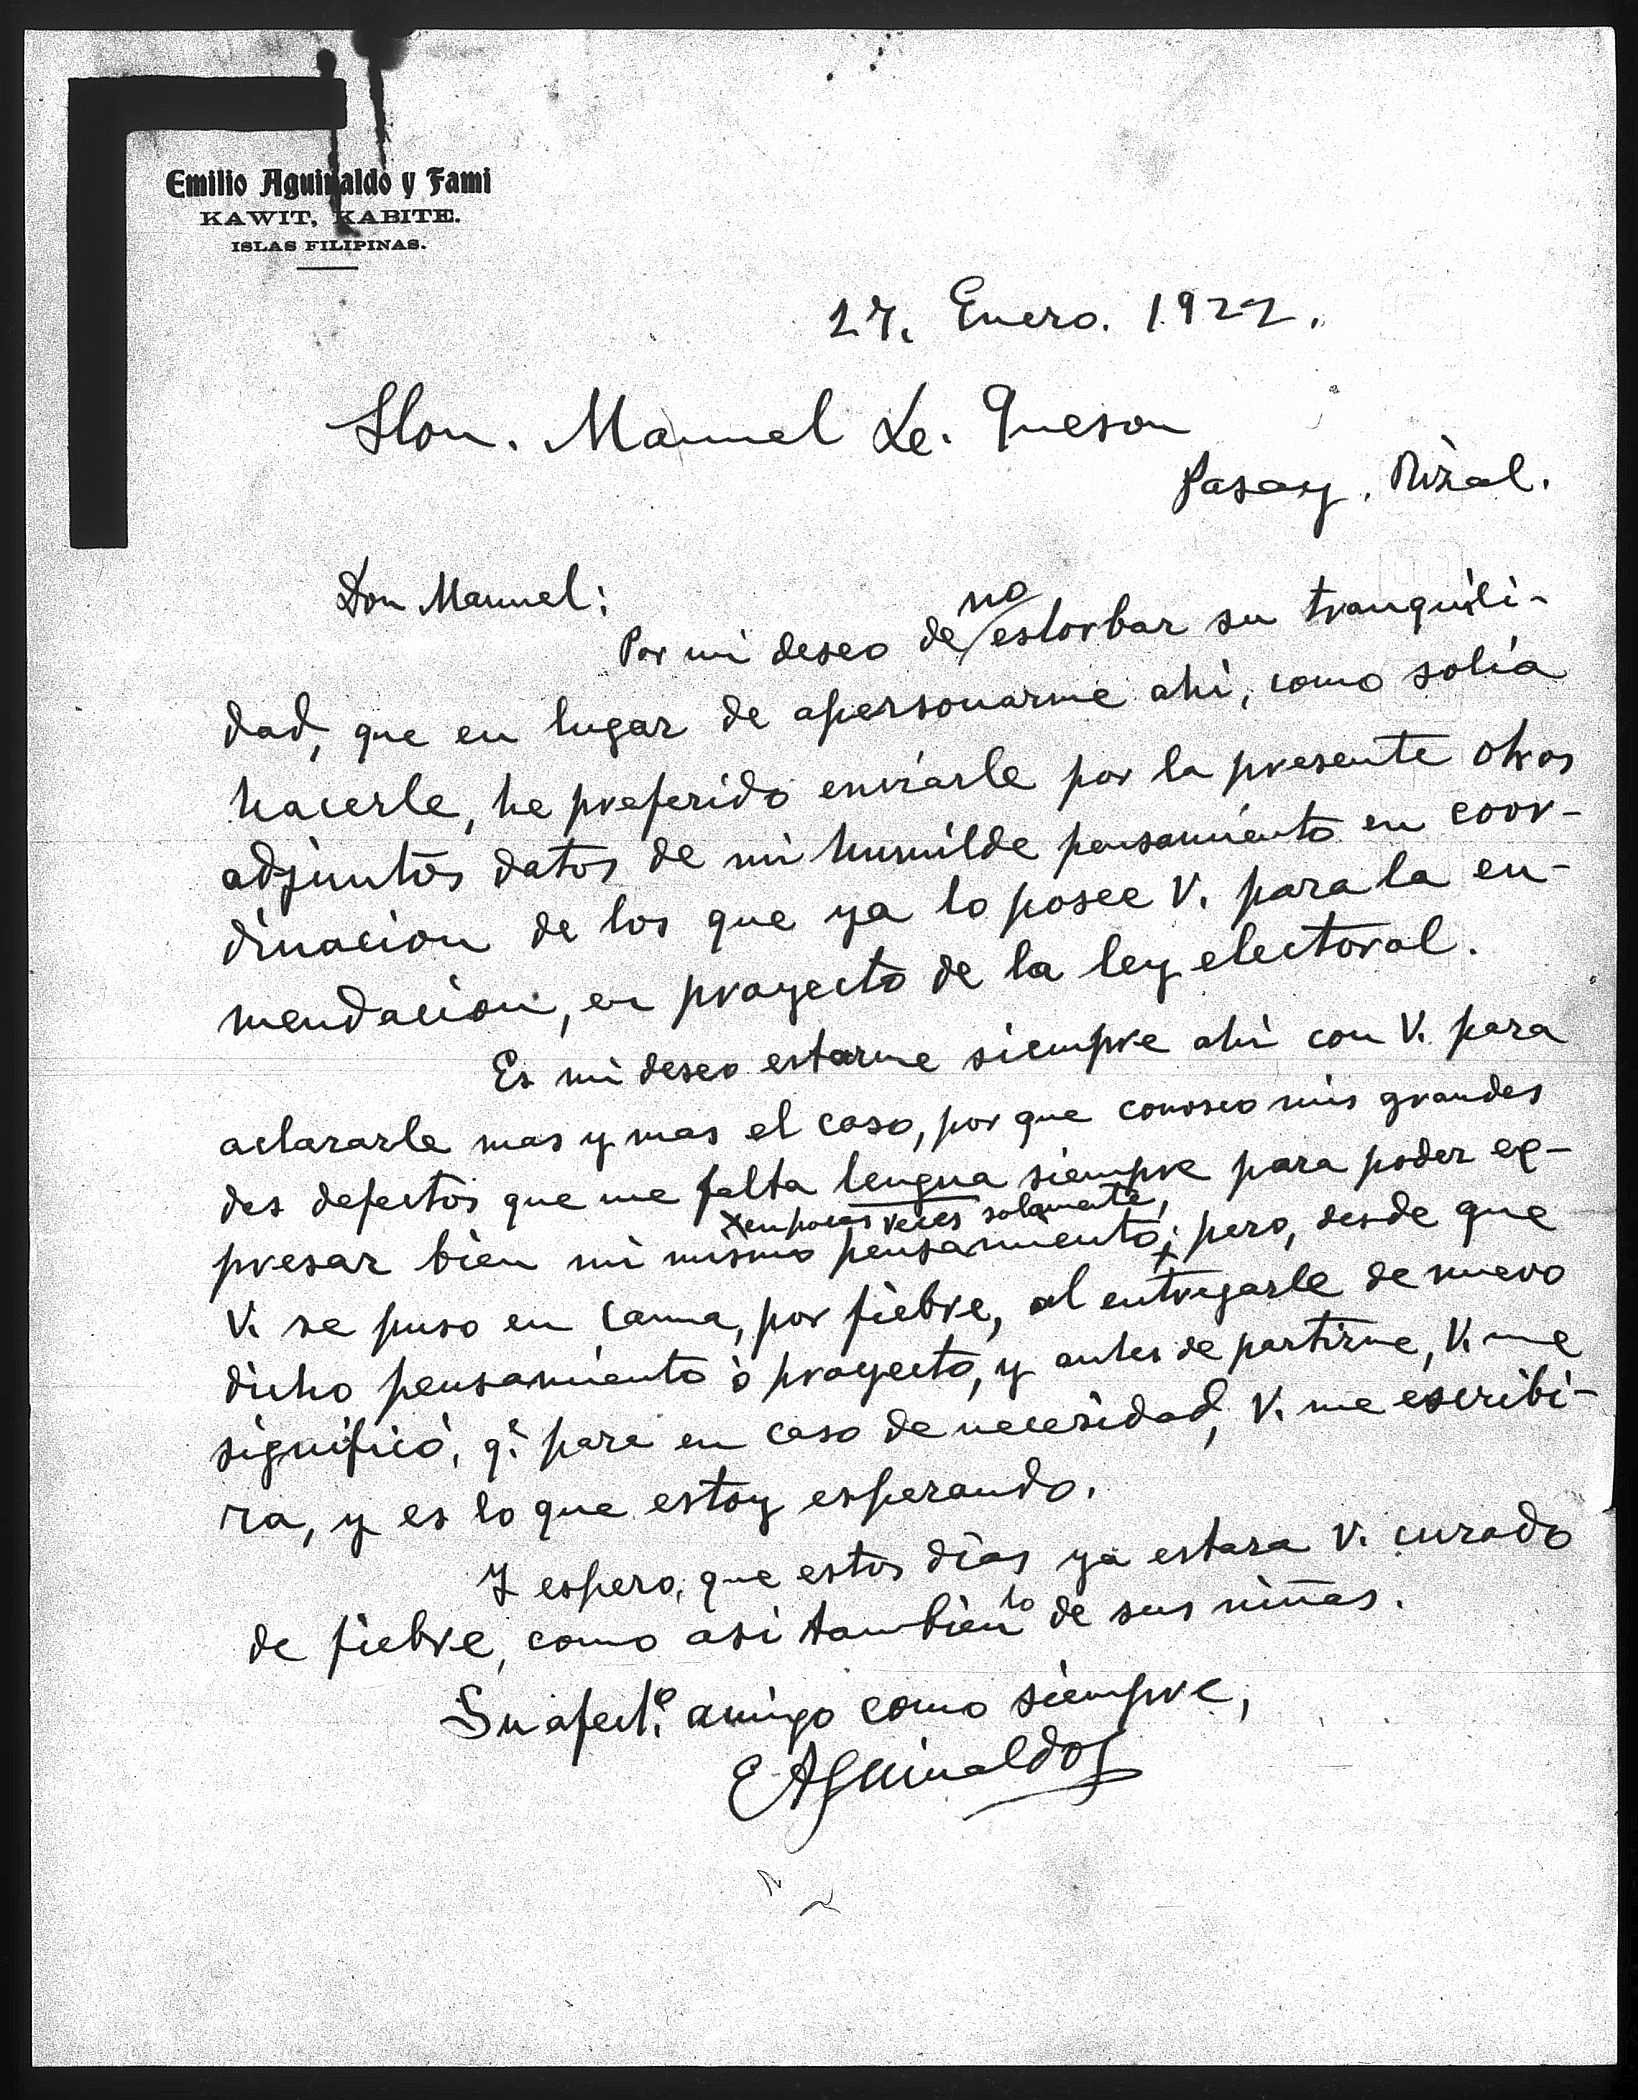 Emilio Aguinaldo y Fami
KAWIT, KABITE.
ISLAS FILIPINAS.
27. Enero. 1922.
Hon. Manuel L. Queson
Pasay, Rizal.
Don Manuel:
no
Por mi deseo de estorbar su tranquili-
dad, que en lugar de apersonarme ahi, como solia
hacerle, he preferido enviarle por la presente otros
adjuntos datos de mi humilde pensamiento en coor-
dinacion de los que ya lo posee V. para la en-
mendacion, en proyecto de la ley electoral.
Es mi deseo estarme siempre ahi con V. para
aclararle mas y mas el caso, por que conosco mis grandes
des defectos que me falta lengua siempre para poder ex-
x en pocas veces solamente,
presar bien mi mismo pensamiento; pero, desde que
V. se puso en cama, por fiebre, al entregarle de nuevo
dicho pensamiento ò proyecto, y antes de partirme, V. me
significó, q. para en caso de necesidad, V. me escribi-
ra, y es lo que estoy esperando.
Y espero, que estos dias ya estara V. curado
de fiebre, como asi tambien lo de sus niñas.
Su afect.º amigo como siempre,
E Aguinaldo